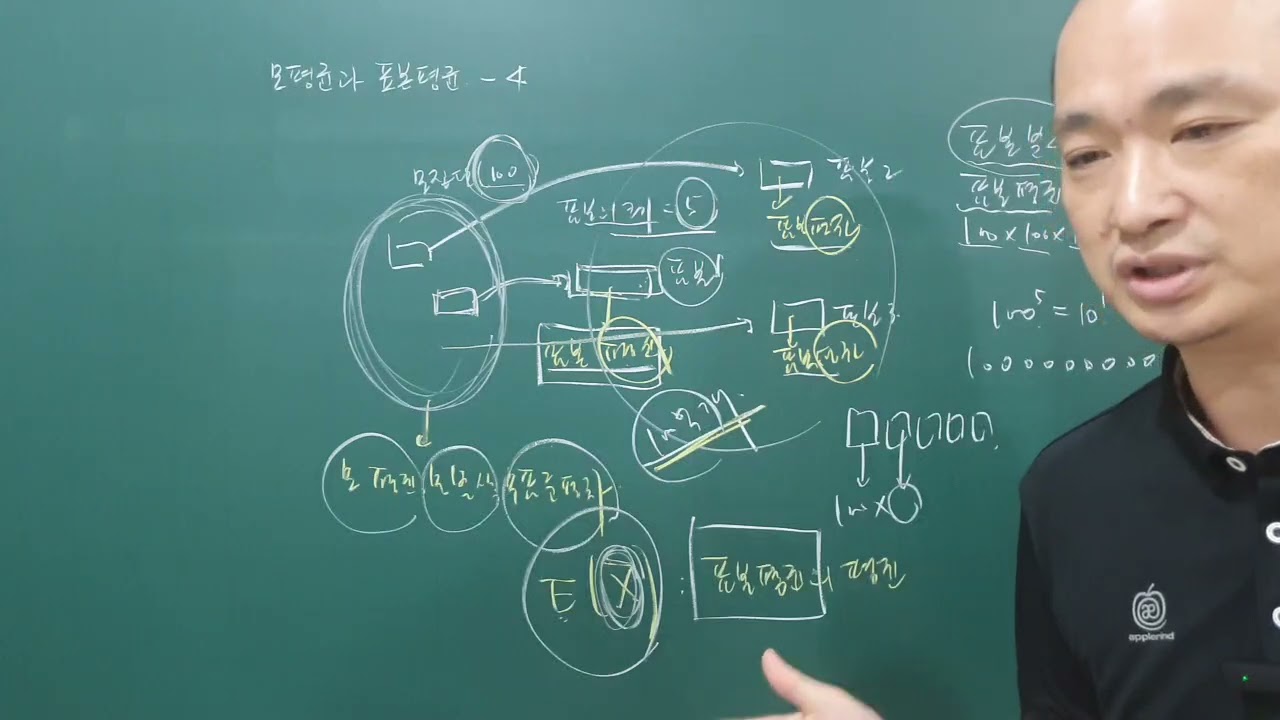 모평균과 표본평균 - 4
모집단 100
표본의 크기 = 5
표본1
표본2
표본평균
표본3
표본평균
표본 평균
100억개
모평균 모분산 모표준편차
E(X) : 표본평균의 평균
표본분산
표본평균
100 × 100 ×
100⁵ = 10
10000000000
100 ×
applerind